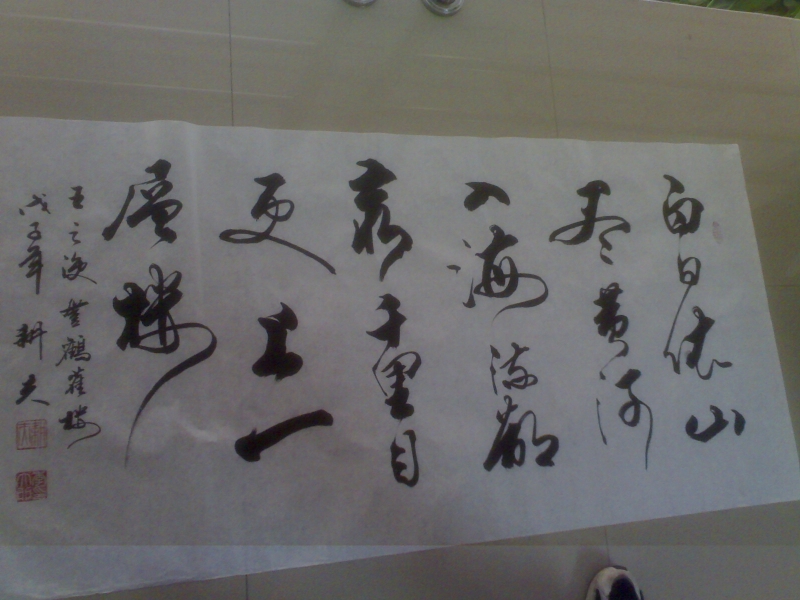 白日依山
尽黄河
入海流欲
穷千里目
更上一
层楼
王之涣登鹳雀楼
戊子年 耕夫